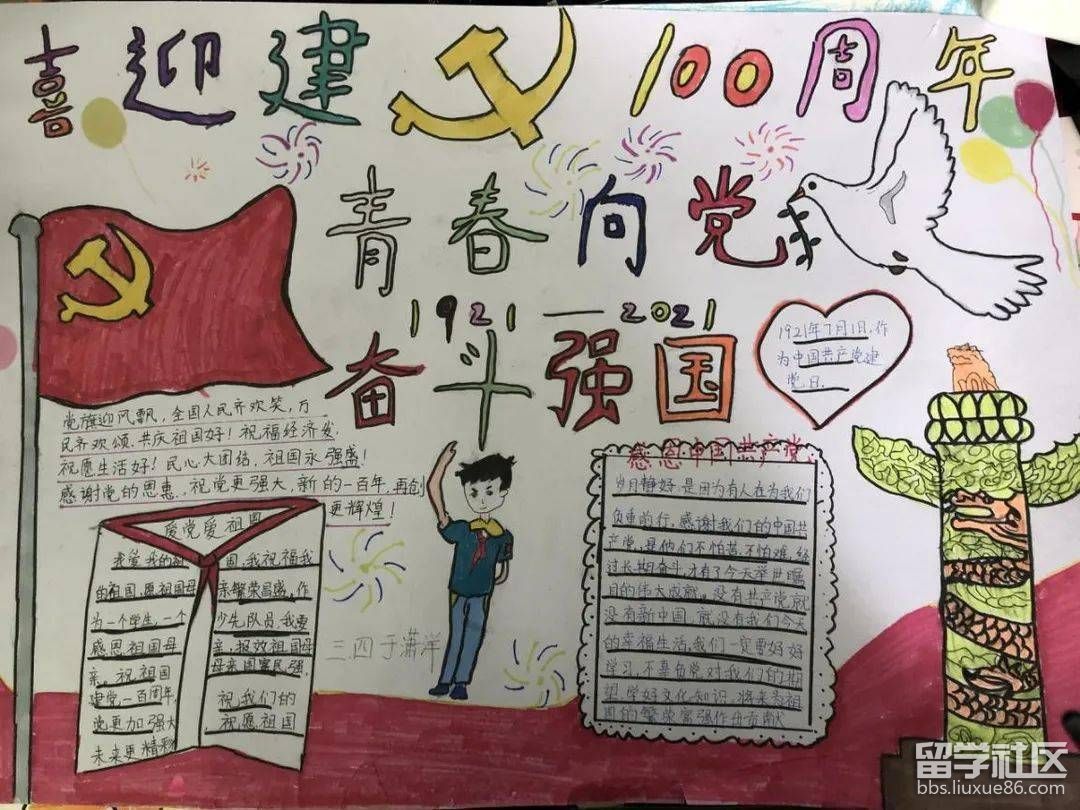 喜迎建 100周年
青春向党
1921—2021
奋斗强国
1921年7月1日,作
为中国共产党建
党日.
党旗迎风飘,全国人民齐欢笑,万
民齐欢颂,共庆祖国好!祝福经济发,
祝愿生活好!民心大团结,祖国永强盛!
感谢党的恩惠,祝党更强大,新的一百年,再创
更辉煌!
爱党爱祖国
我爱我的祖国,我祝福我
的祖国,愿祖国母亲繁荣昌盛,作
为一个学生,一个少先队员,我要
感恩祖国母亲,报效祖国母
亲,祝祖国母亲国富民强,
建党一百周年祝我们的
党更加强大祝愿祖国
未来更精彩
三.四于潇洋
感恩中国共产党.
岁月静好,是因为有人在为我们
负重前行,感谢我们的中国共
产党,是他们不怕苦,不怕难,经
过长期奋斗,才有了今天举世瞩
目的伟大成就,没有共产党就
没有新中国,就没有我们今天
的幸福生活,我们一定要好好
学习,不辜负党对我们的期
望,学好文化知识,将来为祖
国的繁荣富强作出贡献
留学社区
bbs.liuxue86.com